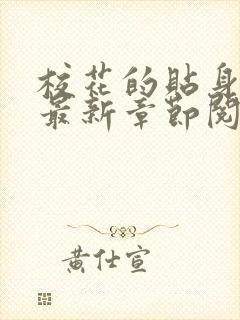 校花的貼身
最新章節閱
黃仕宣